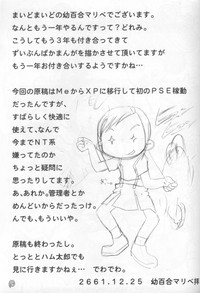 まいどまいどの幼百合マリベでございます。
なんともう一年やるんですって？どれみ。
こうしてもう３年も付き合ってきて
ずいぶんばかまんがを描かさせて頂いてますが
もう一年お付き合いするようですかね…
今回の原稿はＭｅからＸＰに移行して初のＰＳＥ稼動
だったんですが、
すばらしく快適に
使えて、なんで
今までＮＴ系
嫌ってたのか
ちょっと疑問に
思ったりしてます。
あ、あれか。管理者とか
めんどいからだったっけ。
んでも、もういいや。
原稿も終わったし。
とっととハム太郎でも
見に行きますかねぇ… でわでわ。
２６６１．１２．２５　幼百合マリベ拝